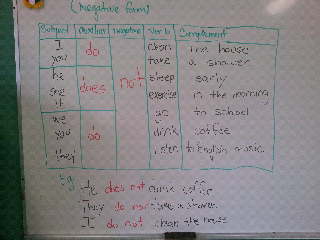 (Negative form)
Subject Auxiliar negative Verb Complement
I do clean the house
you take a shower
he sleep early
she does not exercise in the morning
it
we go to school
you do drink coffee
they listen to english music
Eg: He does not drink coffee
They do not take a shower
I do not clean the house